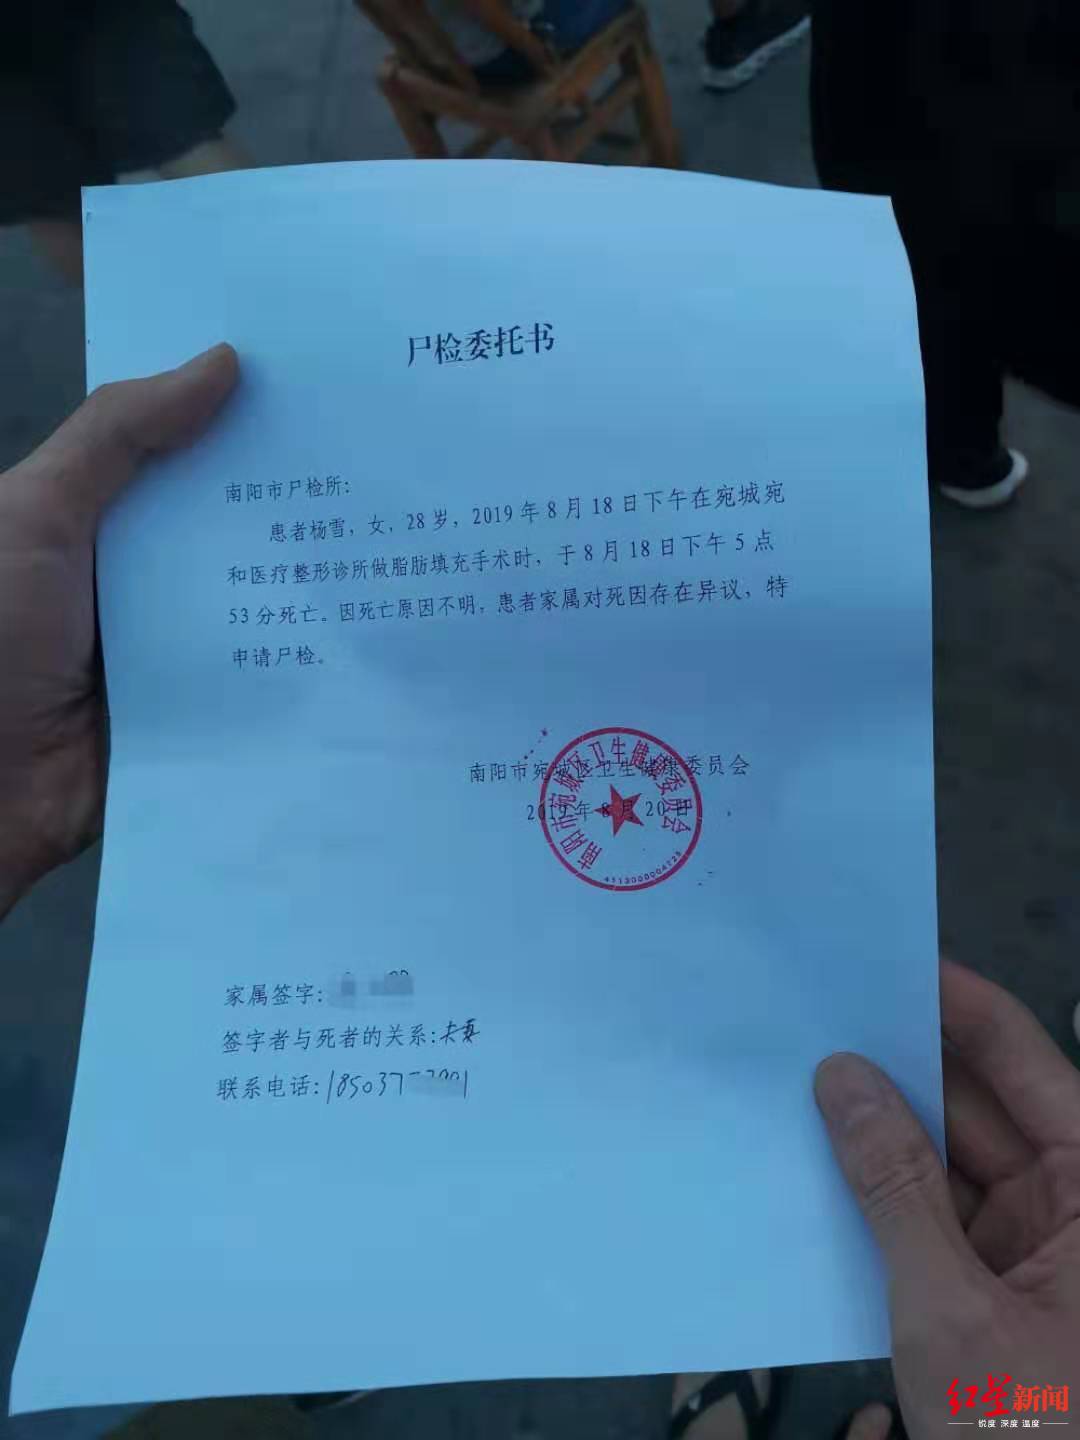 尸检委托书
南阳市尸检所：
患者杨雪，女，28岁，2019年8月18日下午在宛城宛
和医疗整形诊所做脂肪填充手术时，于8月18日下午5点
53分死亡。因死亡原因不明，患者家属对死因存在异议，特
申请尸检。
南阳市宛城区卫生健康委员会
2019年8月20日
南阳市宛城区卫生健康委员会
家属签字：
签字者与死者的关系：夫妻
联系电话：185037
红星新闻
锐度 深度 温度